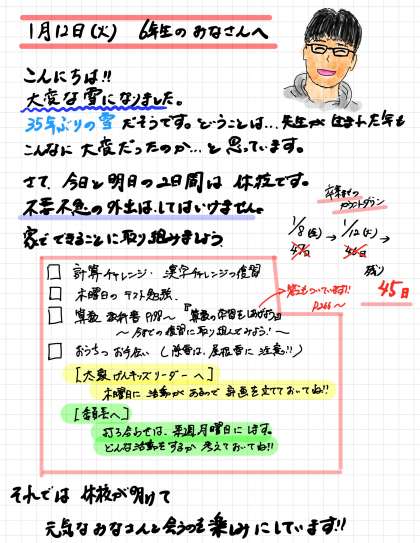 1月12日(火) 6年生のみなさんへ
こんにちは!!
大変な雪になりました。
35年ぶりの雪だそうです。ということは…先生が生まれた年も
こんなに大変だったのか…と思っています。
さて、今日と明日の2日間は休校です。
不要不急の外出はしてはいけません。
家でできることに取り組みましょう
卒業までの
カウントダウン
1/8(金) → 1/12(火) →
47日 46日
残り
45日
計算チャレンジ・漢字チャレンジの復習
木曜日のテスト勉強
算数 教科書 『算数の学習をしあげよう』
〜今までの復習に取り組んでみよう!〜
答えもついています!!
P266〜
おうちのお手伝い(除雪は、屋根雪に注意!!)
[大泉げんキッズリーダーへ]
木曜日に活動があるので計画を立てておいてね!!
[委員長へ]
打ち合わせは、来週月曜日にします。
どんな活動をするか考えておいてね!!
それでは 休校が明けて
元気なみなさんと会うのを楽しみにしています!!